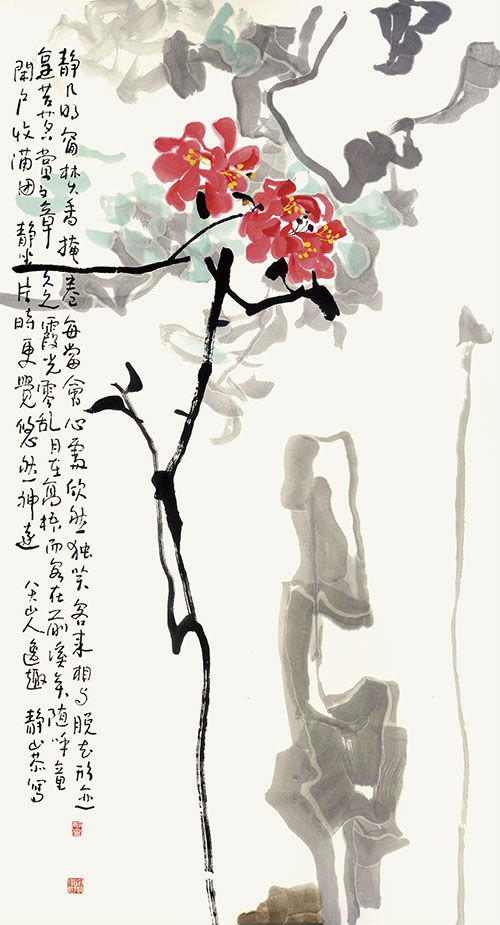 静几明窗焚香掩卷每當會心處欣然独笑客来相与脱去形迹
烹苦茗賞文章久之霞光零乱月在高梧而客在前溪矣随呼童
閉户收蒲团静坐片時更覺悠然神遠 八大山人逸趣 静山恭寫